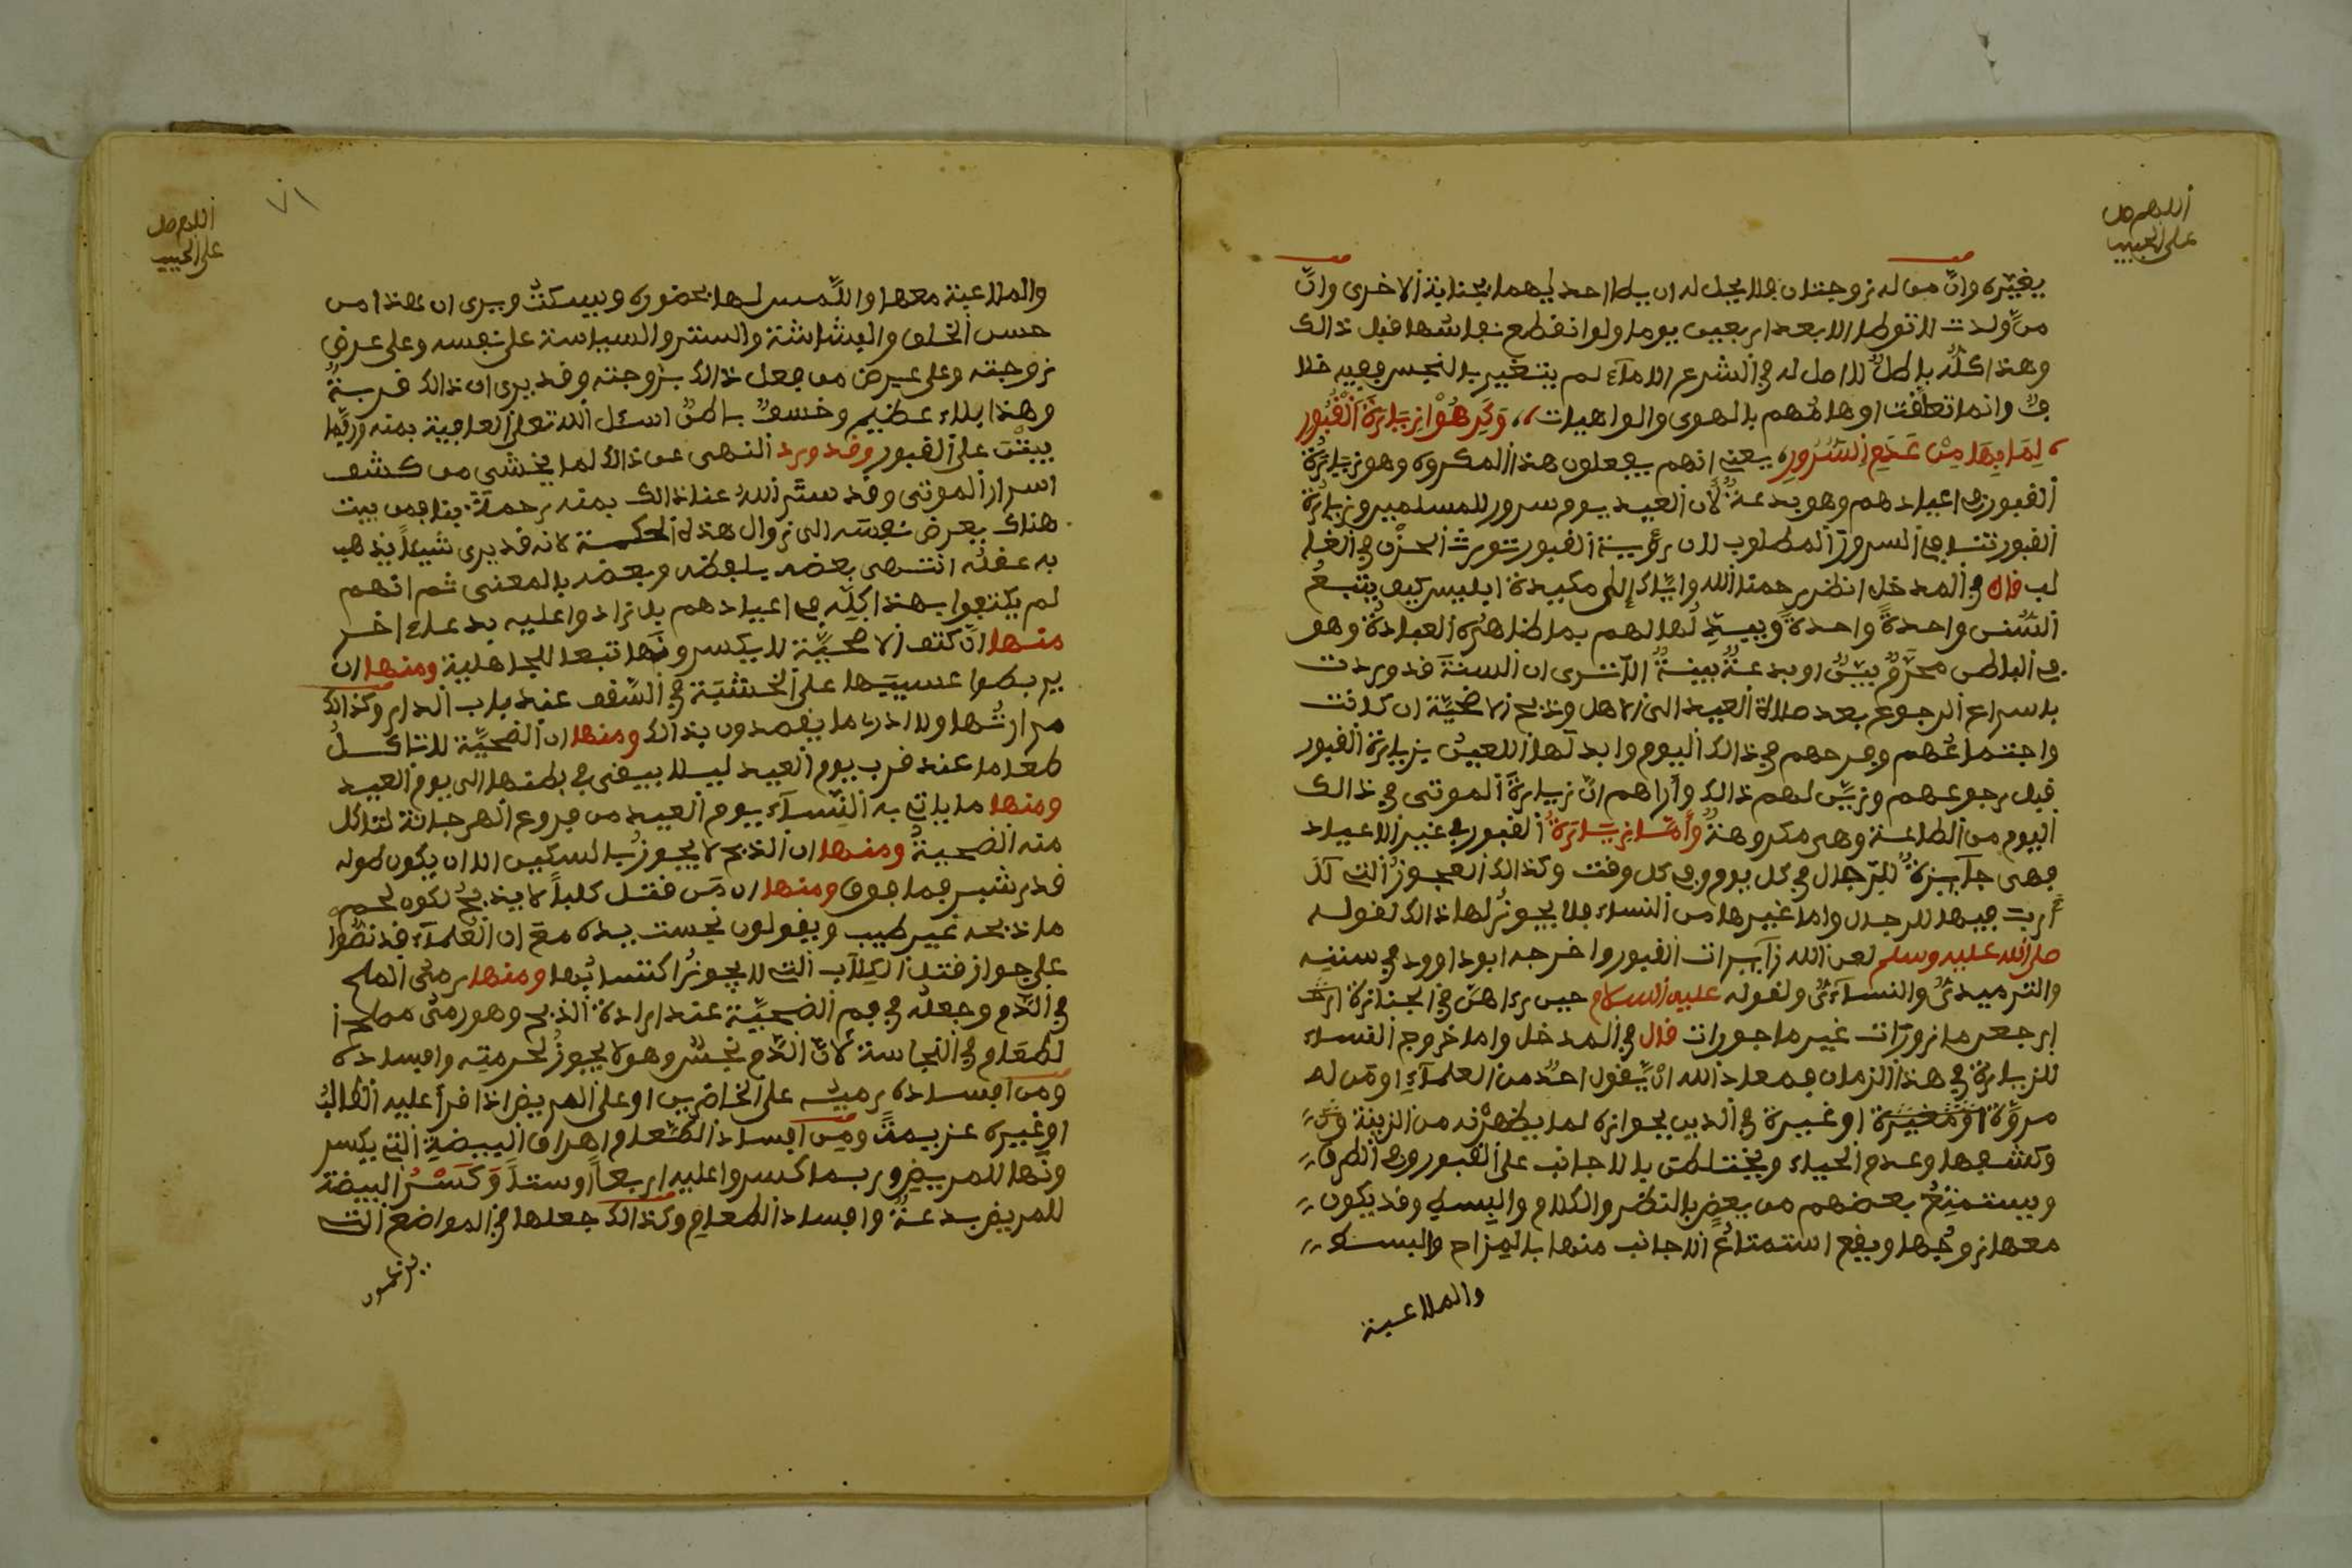 اللهم صل
على الحبيب
يغيّره وانّ من له زوجتان فلا يحل له ان يطا احديهما بجنابة الاخرى وانّ
من ولدت لا توطا الا بعد اربعين يوما ولو انقطع نفاسها قبل ذالك
وهذا كلّه باطلٌ لا اصل له في الشرع الا مآء لم يتغير بالنجس ففيه خلا
فٌ وانما تعلقت اوهامُهم بالهوى والواهيات وَكَرِهُوْا زِيَارَةَ اَلْقُبُورِ
لِمَا فِيهَا مِنْ عَدَمِ اِلسُّرُورِ يعني انهم يفعلون هذا المكروه وهو زيارةُ
القبور في اعيادهم وهو بدعةٌ لأن العيد يوم سرور للمسلمين وزيارةُ
القبور تنافي السرور المطلوب لان رؤية القبور تورث الحزن في القلـ
لب قال في المدخل انظر رحمنا الله وايّاك إلى مكيدة ابليس كيف يتبعُ
السُّنن واحدةً واحدةً ويبدّلُها لهم بما ظاهرُه العبادةُ وهو
في الباطن محرّمٌ بيّنٌ او بدعةٌ بينةٌ الا ترى ان السنةَ قد وردت
باسراع الرجوع بعد صلاة العيد الى الاهل وذبح الاضحيّة ان كانت
واجتماعُهم وفرحهم في ذالك اليوم وابدلها اللعينُ بزيارة القبور
قبل رجوعهم وزيّن لهم ذالك وأراهم انّ زيارةَ الموتى في ذالك
اليوم من الطاعة وهى مكروهةٌ وَأَمَّا زِيَارَةُ القبور في غير الاعياد
فهى جآيزةٌ للرّجال في كل يوم وفي كل وقت وكذالك العجوزُ التي لا
أرب فيها للرجال واما غيرها من النساء فلا يجوزُ لها ذالك لقوله
صلى الله عليه وسلم لعن الله زآيرات القبور واخرجه ابو داوود في سننه
والترميذيُّ والنساءيُّ ولقوله عليه السلام حين رءاهنّ في الجنازة ارجـ
إرجعن مازورات غير ماجورات قال في المدخل واما خروج النساء
للزيارة في هذا الزمان فمعاذ الله انْ يّقول احدٌ من العلمآء او مَن له
مروّة او غيرة في الدين بجوازه لما يظهرْنه من الزينة
وكشفها وعدم الحياء ويختلطن بالاجانب على القبور وفي الطرق
ويستمتِعُ بعضهم من بعضٍ بالنظر والكلام والبسط وقد يكون
معها زوجُها ويقع استمتاعُ الاجانب منها بالمزاح والبسط
والملاعبة
اللهم صل
على الحبيب
٧١
والملاعبة معها واللّمس لها بحضوره ويسكتُ ويرى ان هذا من
حسن الخلق والبشاشة والستر والسياسة على نفسه وعلى عرض
زوجته وعلى عرض من فعل ذالك بزوجته وقد يرى ان ذالك قربةٌ
وهذا بلاء عظيم وخسفٌ باطنٌ اسئل الله تعلى العافية بمنه وربّما
يبتْن على القبور وقد ورد النهى عن ذالك لما يخشى من كشف
اسرار الموتى وقد ستَر اللهُ عنا ذالك بمنه رحمةً بنا فمن بيت
هناك يعرض نفسَه الى زوال هذه الحكمة لانه قد يرى شيئاً يذهب
به عقله انتهى بعضه بلفظه وبعضه بالمعنى ثم انهم
لم يكتفوا بهذا كلِّه في اعيادهم بل زادوا عليه بدعا ءاخر
منها انّ كتف الاضحيّة لا يكسرونَها تبعا للجاهلية ومنها ان
يربطوا عسيبَها على الخشبَة في السّقف عند باب الدار وكذالك
مرارتُها ولا ادرى ما يقصدون بذالك ومنها ان الضحيّة لا تاكلُ
طعاما عند قرب يوم العيد ليلا يبقى في بطنها الى يوم العيد
ومنها ما ياتي به النّسآء يوم العيد من فروع الهرجانة لتاكل
منه الضحيةُ ومنها ان الذبح لا يجوزُ بالسكين الا ان يكون طوله
قدر شبر فما فوق ومنها ان مَن قتل كلباً لا يذبحُ لكون لحم
ما ذبحه غير طيب ويقولون نجست يده معَ ان العلمآء قد نصّوا
على جواز قتل الكِلاب التي لا يجوزُ اكتسابُها ومنها رمىُ الملح
في الدّم وجعلُه في فم الضحيّة عند ارادة الذبح وهو رمىُ ملح ا
لطّعام في النجاسة لأنّ الدّم نجسٌ وهو لا يجوزُ لحرمتِه وافساده
ومن افساده رميُه على الحاضرين او على المريض اذا قرأ عليه الطالبُ
او غيره عزيمةً ومِن افساد الطّعام اهراق البيضةِ التي يكسر
ونَها للمريض وربما كسروا عليه اربعاً اوستاً وَكَسْرُ البيضة
للمريض بدعةٌ وافساد الطعام وكذالك جعلها في المواضع التي